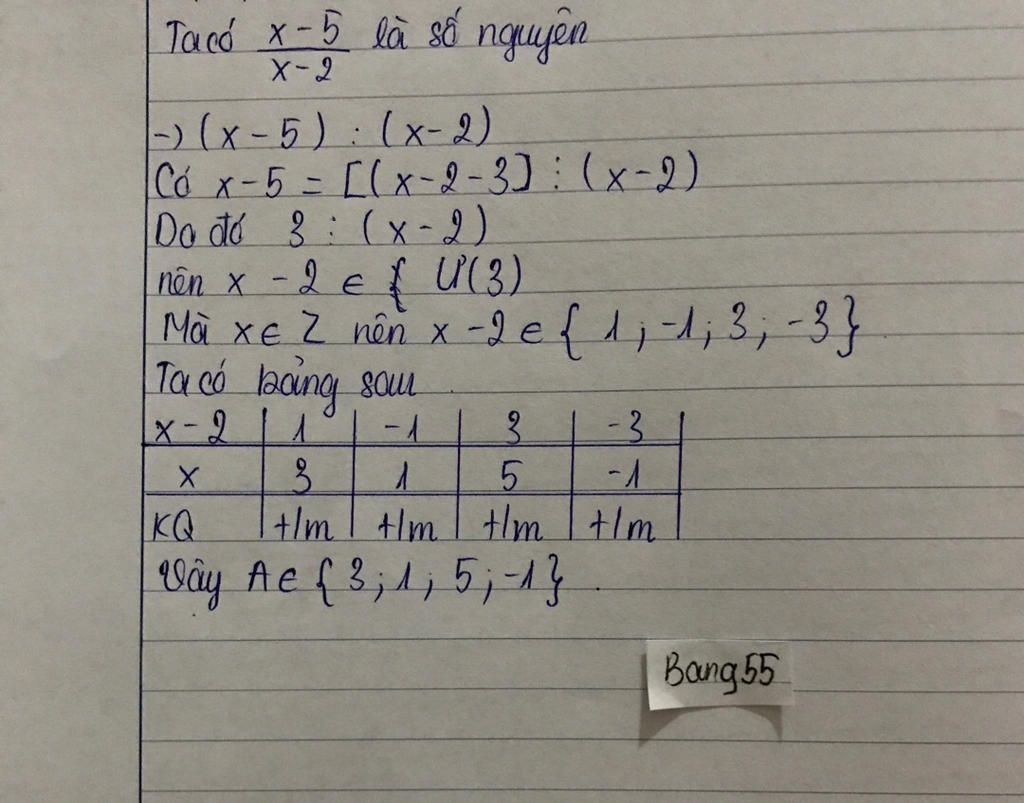 Ta có x-5/x-2 là số nguyên
→ (x-5) ⋮ (x-2)
Có x-5 = [(x-2-3] ⋮ (x-2)
Do đó 3 ⋮ (x-2)
nên x-2 ∈ Ư(3)
Mà x∈Z nên x-2∈{1; -1; 3; -3}
Ta có bảng sau
x-2 | 1 | -1 | 3 | -3
x | 3 | 1 | 5 | -1
KQ | t/m | t/m | t/m | t/m
Vây A∈{3; 1; 5; -1}.
Bang55